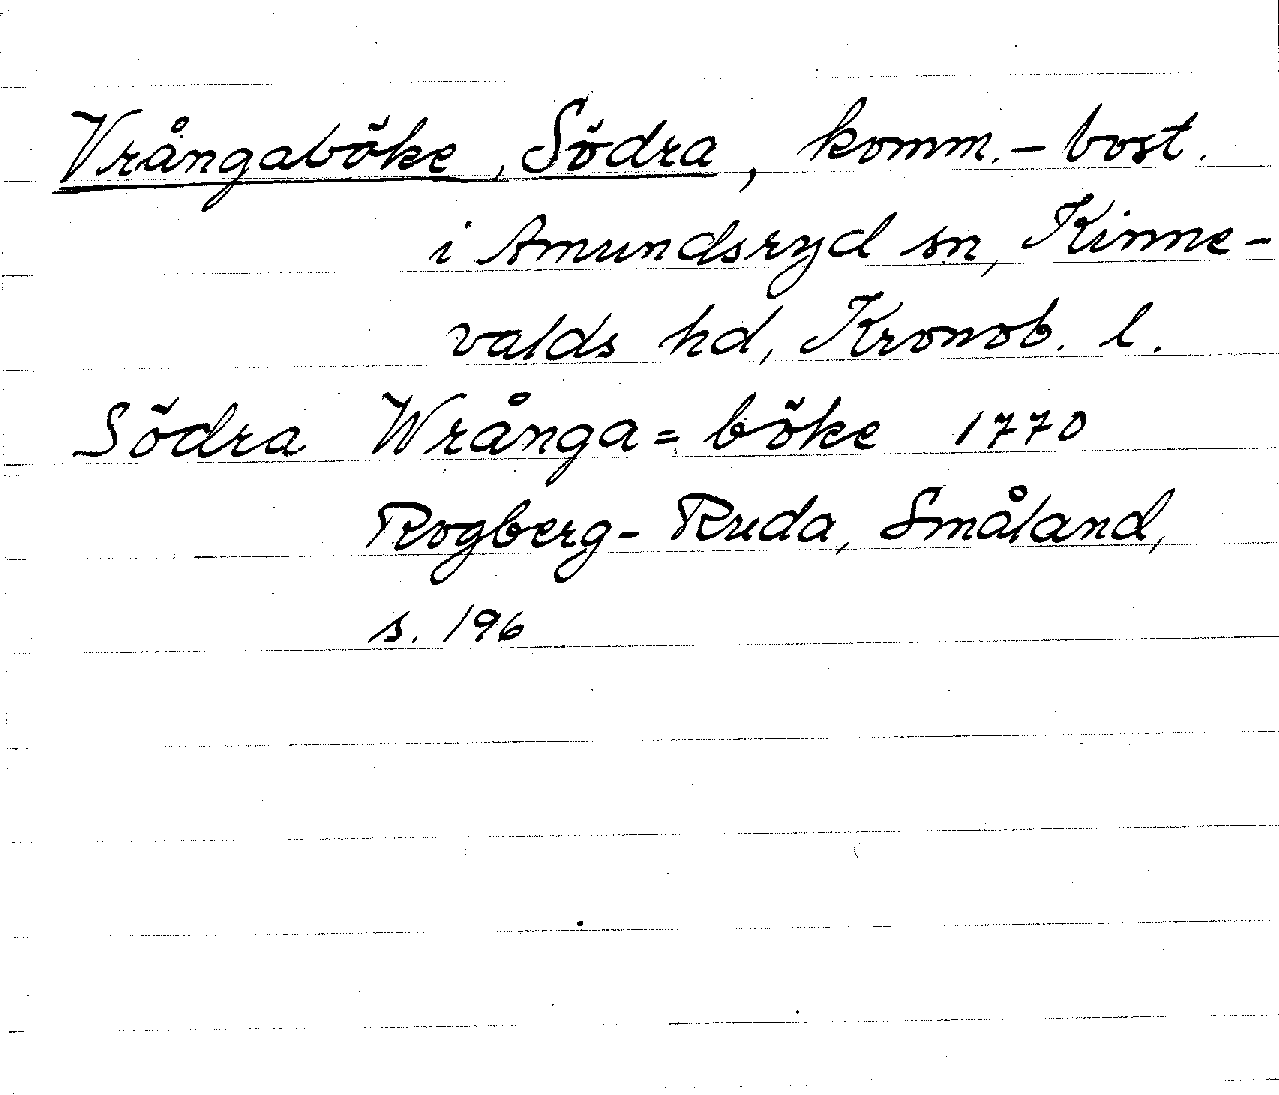 Vrångaböke, Södra, komm.-bost.
i Amundsryd sn, Kinne-
valds hd, Kronob. l.
Södra Wrånga=böke 1770
Rogberg-Ruda, Småland,
s. 196